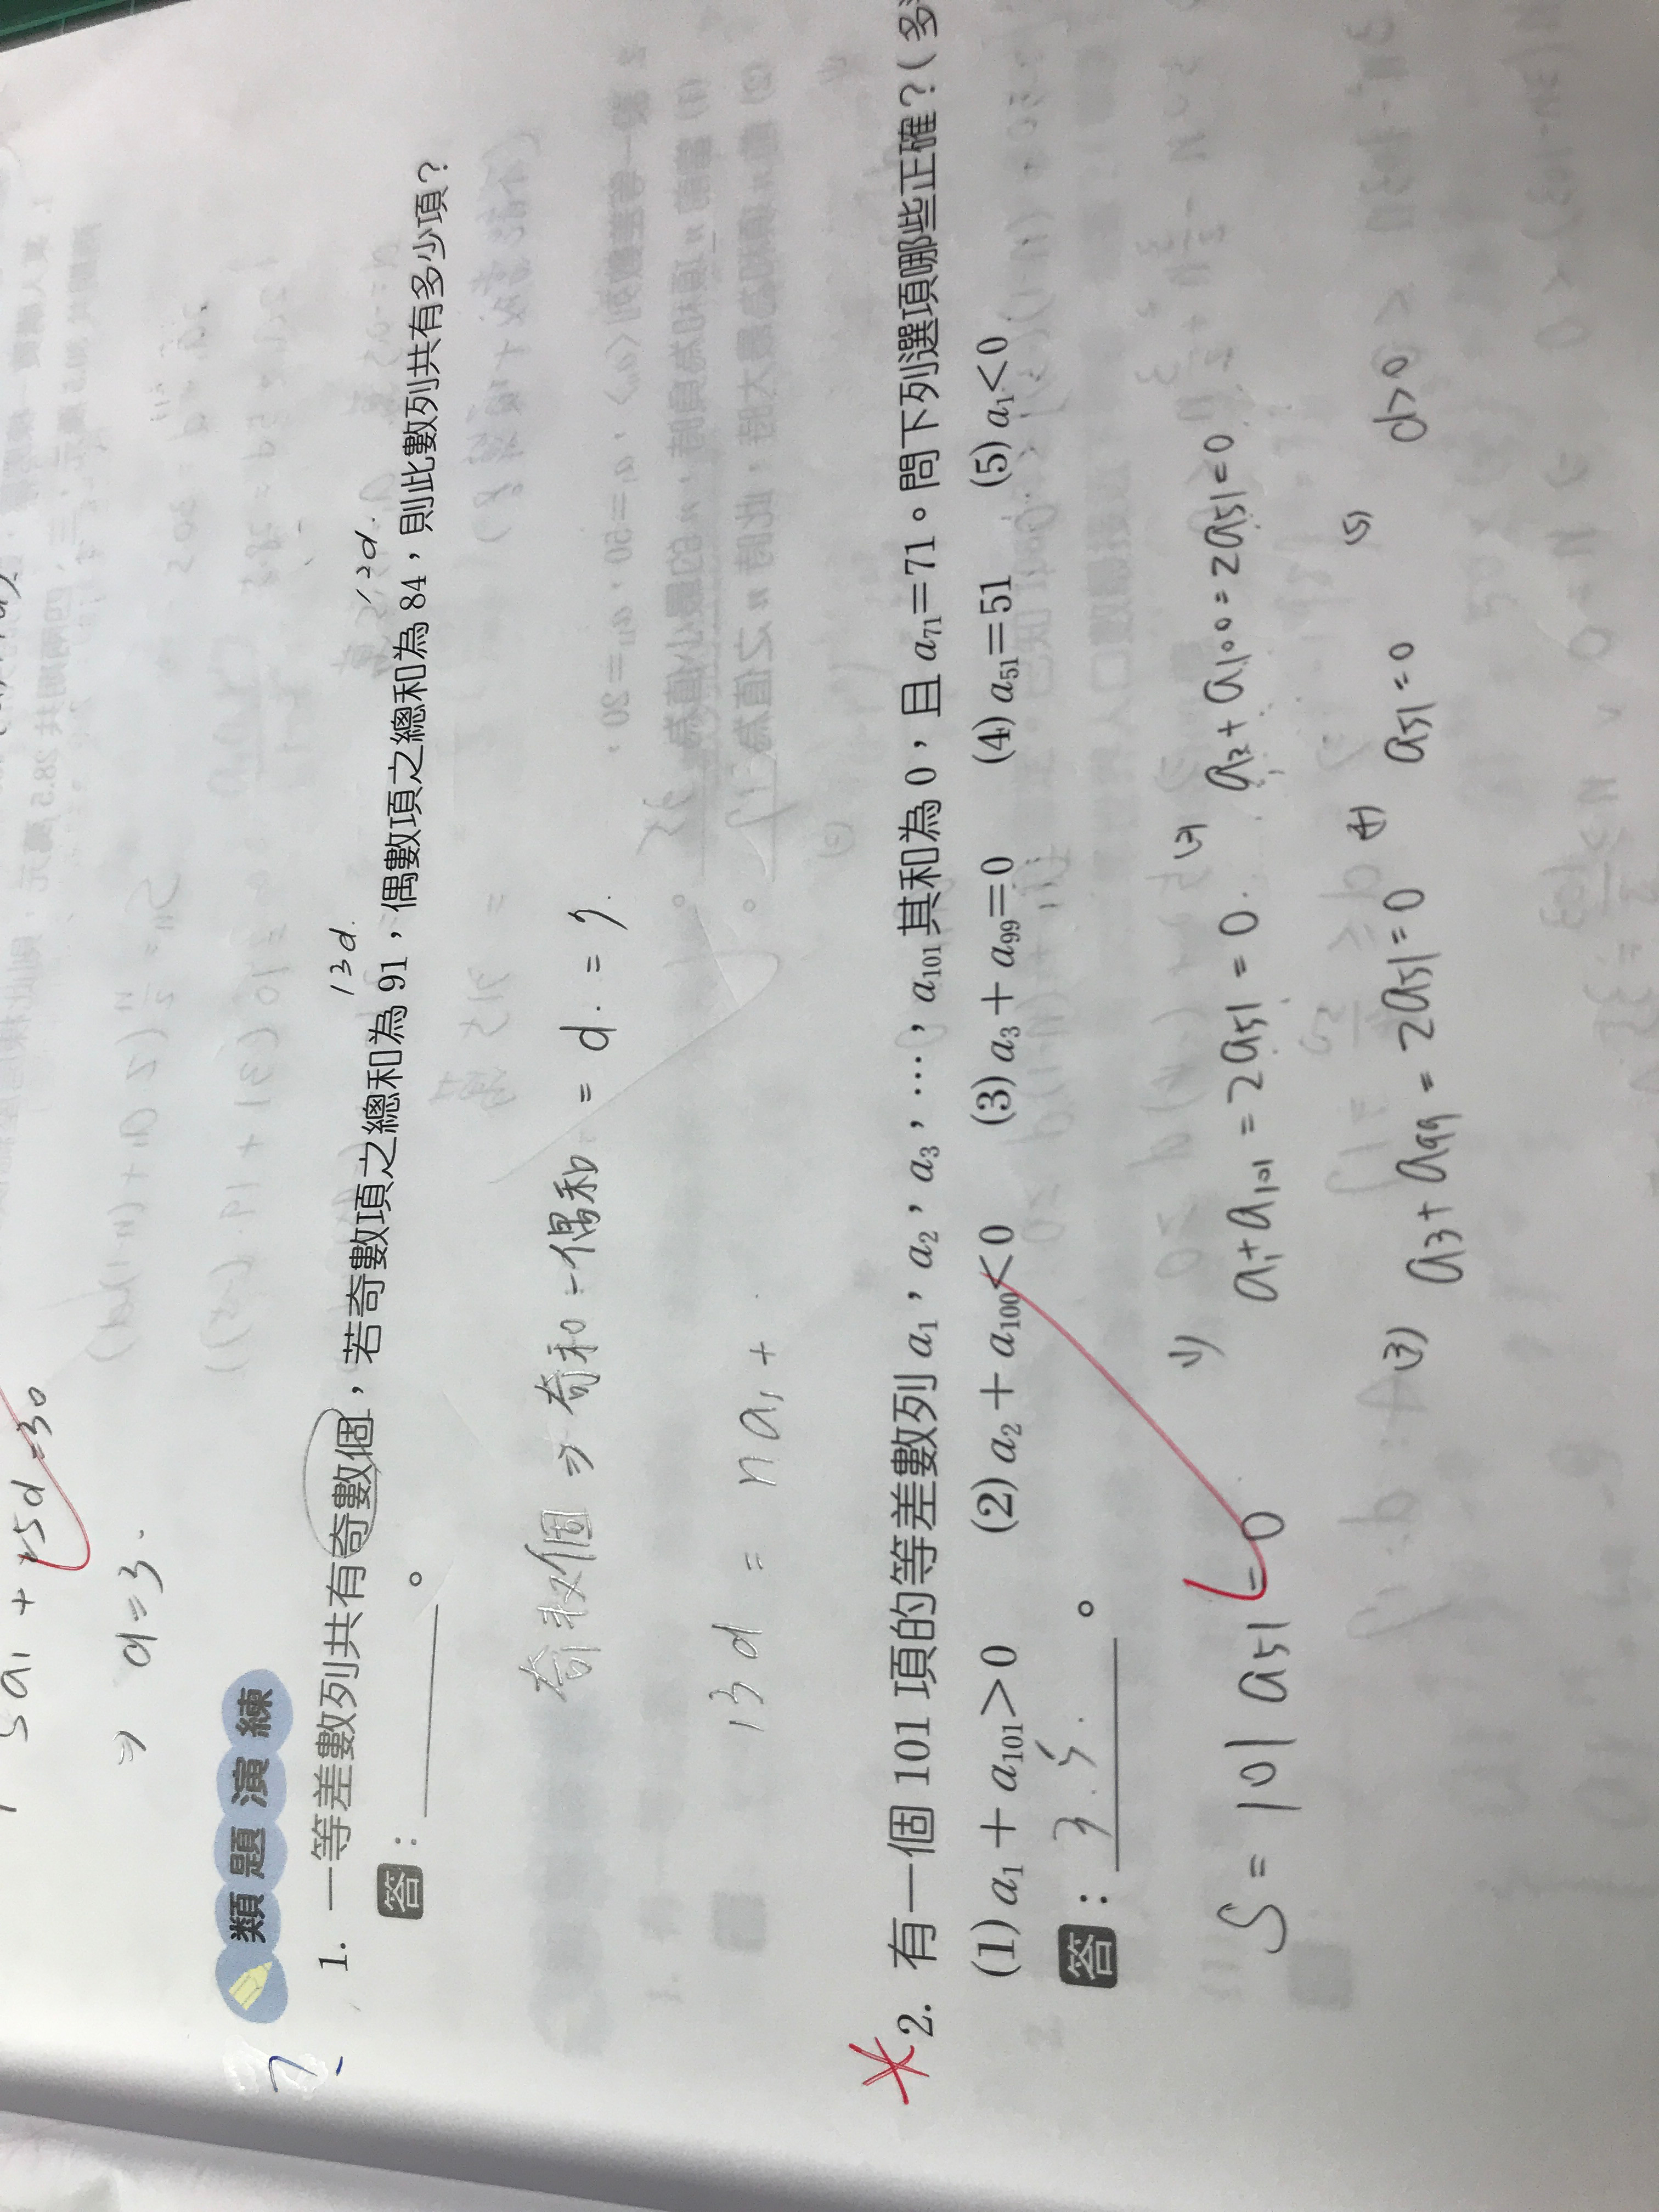 5a₁ + 45d = 30
⇒ d = 3.
類題演練
1. 一等差數列共有奇數個，若奇數項之總和為 91，偶數項之總和為 84，則此數列共有多少項？
13d. 12d.
答：________。
奇数個 ⇒ 奇和 - 偶和 = d. = 7.
13d = na₁ +
2. 有一個 101 項的等差數列 a₁，a₂，a₃，…，a₁₀₁ 其和為 0，且 a₇₁＝71。問下列選項哪些正確？（多
(1) a₁＋a₁₀₁＞0 (2) a₂＋a₁₀₀＜0 (3) a₃＋a₉₉＝0 (4) a₅₁＝51 (5) a₁＜0
答：3.5.。
S = 101 a51 = 0
(1) a₁ + a₁₀₁ = 2a51 = 0. (2) a₂ + a₁₀₀ = 2a51 = 0
(3) a3 + a99 = 2a51 = 0 (4) a51 = 0 (5) d > 0